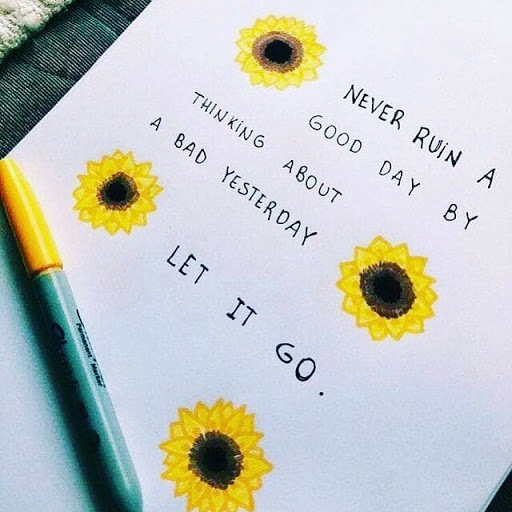 NEVER RUIN A
GOOD DAY BY
THINKING ABOUT
A BAD YESTERDAY
LET IT GO.
Sharpie
Permanent Marker